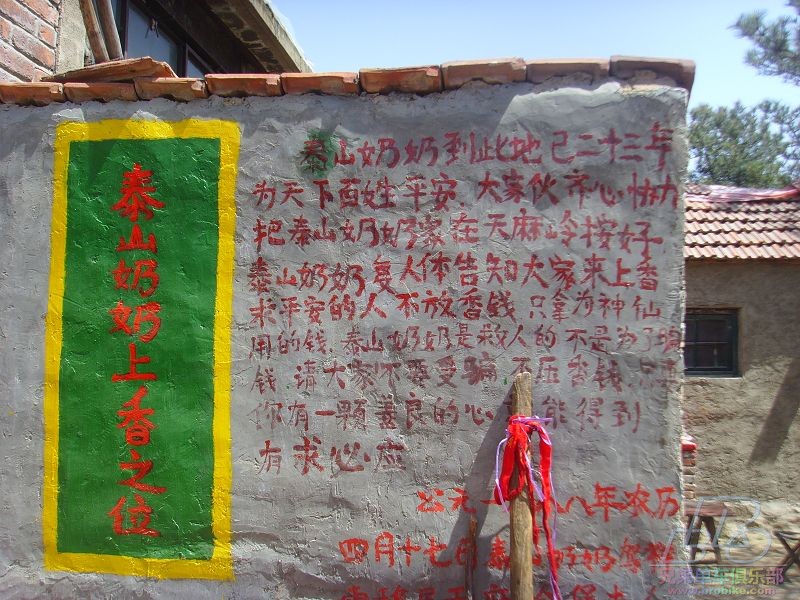 泰山奶奶上香之位
泰山奶奶到此地已二十三年
为天下百姓平安.大家伙齐心协力
把泰山奶奶家在天麻岭按好
泰山奶奶复人体告知大家来上香
求平安的人不放香钱只拿为神仙
用的钱.泰山奶奶是救人的不是为了
钱 请大家不要受骗 不压香钱
你有一颗善良的心 能得到
有求必应
公元一 八年农历
四月十七日泰山奶奶
www.brobike.com